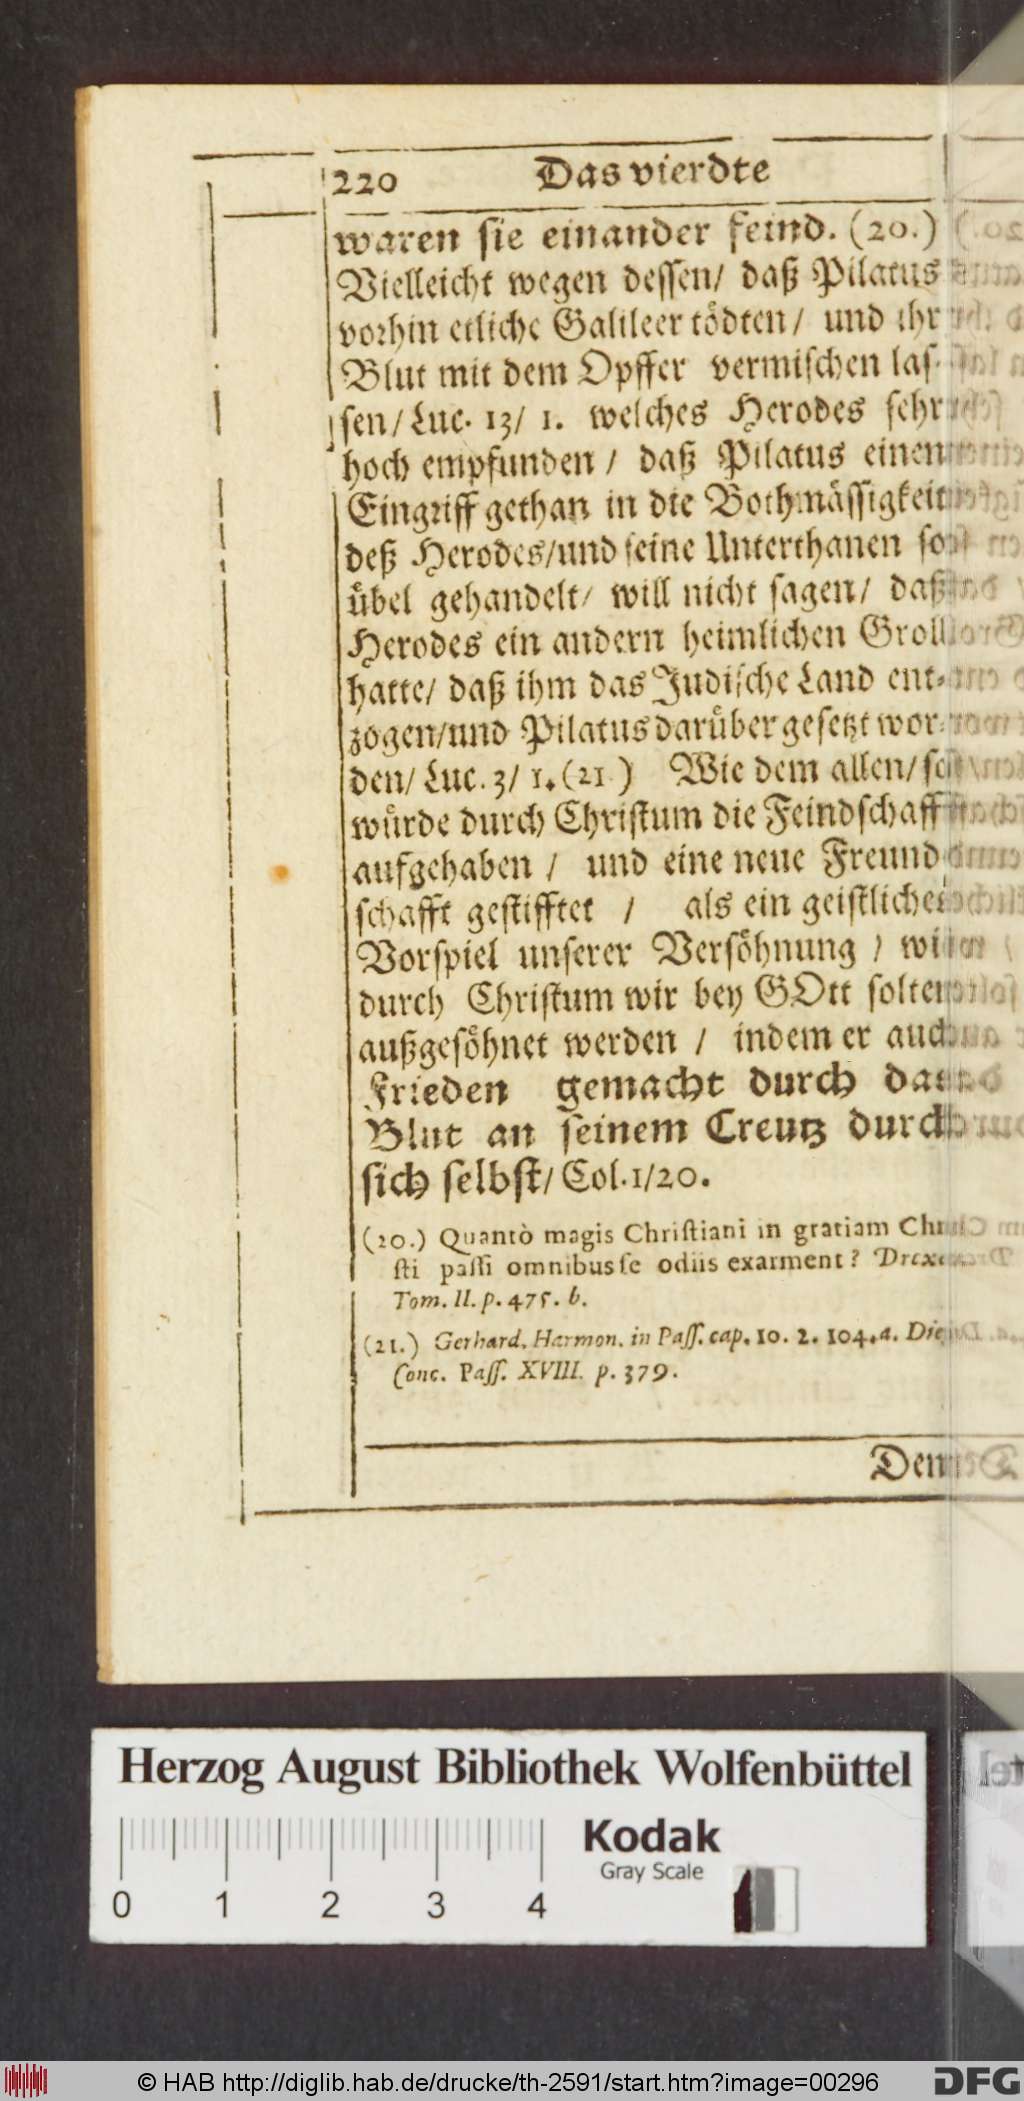 220 Das vierdte
waren sie einander feind. (20.)
Vielleicht wegen dessen/ daß Pilatus
vorhin etliche Galileer tödten/ und ihr
Blut mit dem Opffer vermischen las-
sen/ Luc. 13/ 1. welches Herodes sehr
hoch empfunden/ daß Pilatus einen
Eingriff gethan in die Bothmässigkeit
deß Herodes/und seine Unterthanen so
übel gehandelt/ will nicht sagen/ daß
Herodes ein andern heimlichen Groll
hatte/ daß ihm das Judische Land ent-
zogen/und Pilatus darüber gesetzt wor-
den/ Luc. 3/ 1. (21.) Wie dem allen/ so
würde durch Christum die Feindschaff
aufgehaben / und eine neue Freund
schafft gestifftet / als ein geistliches
Vorspiel unserer Versöhnung / wie
durch Christum wir bey GOtt solten
außgesöhnet werden / indem er auch
Frieden gemacht durch das
Blut an seinem Creutz durch
sich selbst/ Col. 1/20.
(20.) Quantò magis Christiani in gratiam Chri
sti passi omnibus se odiis exarment? Drexel.
Tom. II. p. 475. b.
(21.) Gerhard. Harmon. in Pass. cap. 10. 2. 104. a.
Conc. Pass. XVIII. p. 379.
Dem
Herzog August Bibliothek Wolfenbüttel
Kodak
Gray Scale
0 1 2 3 4
© HAB http://diglib.hab.de/drucke/th-2591/start.htm?image=00296
DFG